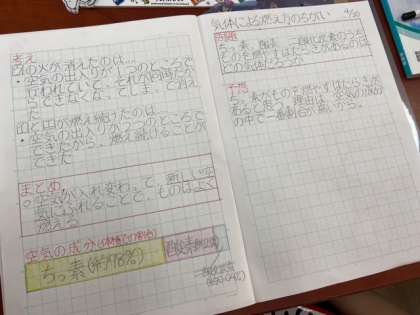 考え
㋐の火が消えたのは…
・空気の出入りが1つのところで
行われていて、それが両方だか
らできなくなってしまって消え
た
㋑と㋒が燃え続けたのは…
・空気の出入りが2つのところで
できたから、燃え続けることが
できた
まとめ
○空気が入れ変わって、新しい空
気にふれることで、ものはよく
燃える
空気の成分(体積での割合)
ちっ素(約78%)
酸素(約21%)
二酸化炭素
(約0.04%)
気体による燃え方のちがい
4/20
問題
ちっ素、酸素、二酸化炭素のうち
ものを燃やすはたらきがあるのは
どの気体だろうか
予想
ちっ素がものを燃やすはたらきが
あると思う。理由は、空気の成分
の中で一番割合が高いから。